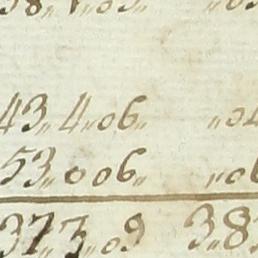 43„4„06„ „04
53„006„ „06
373„09 3„8